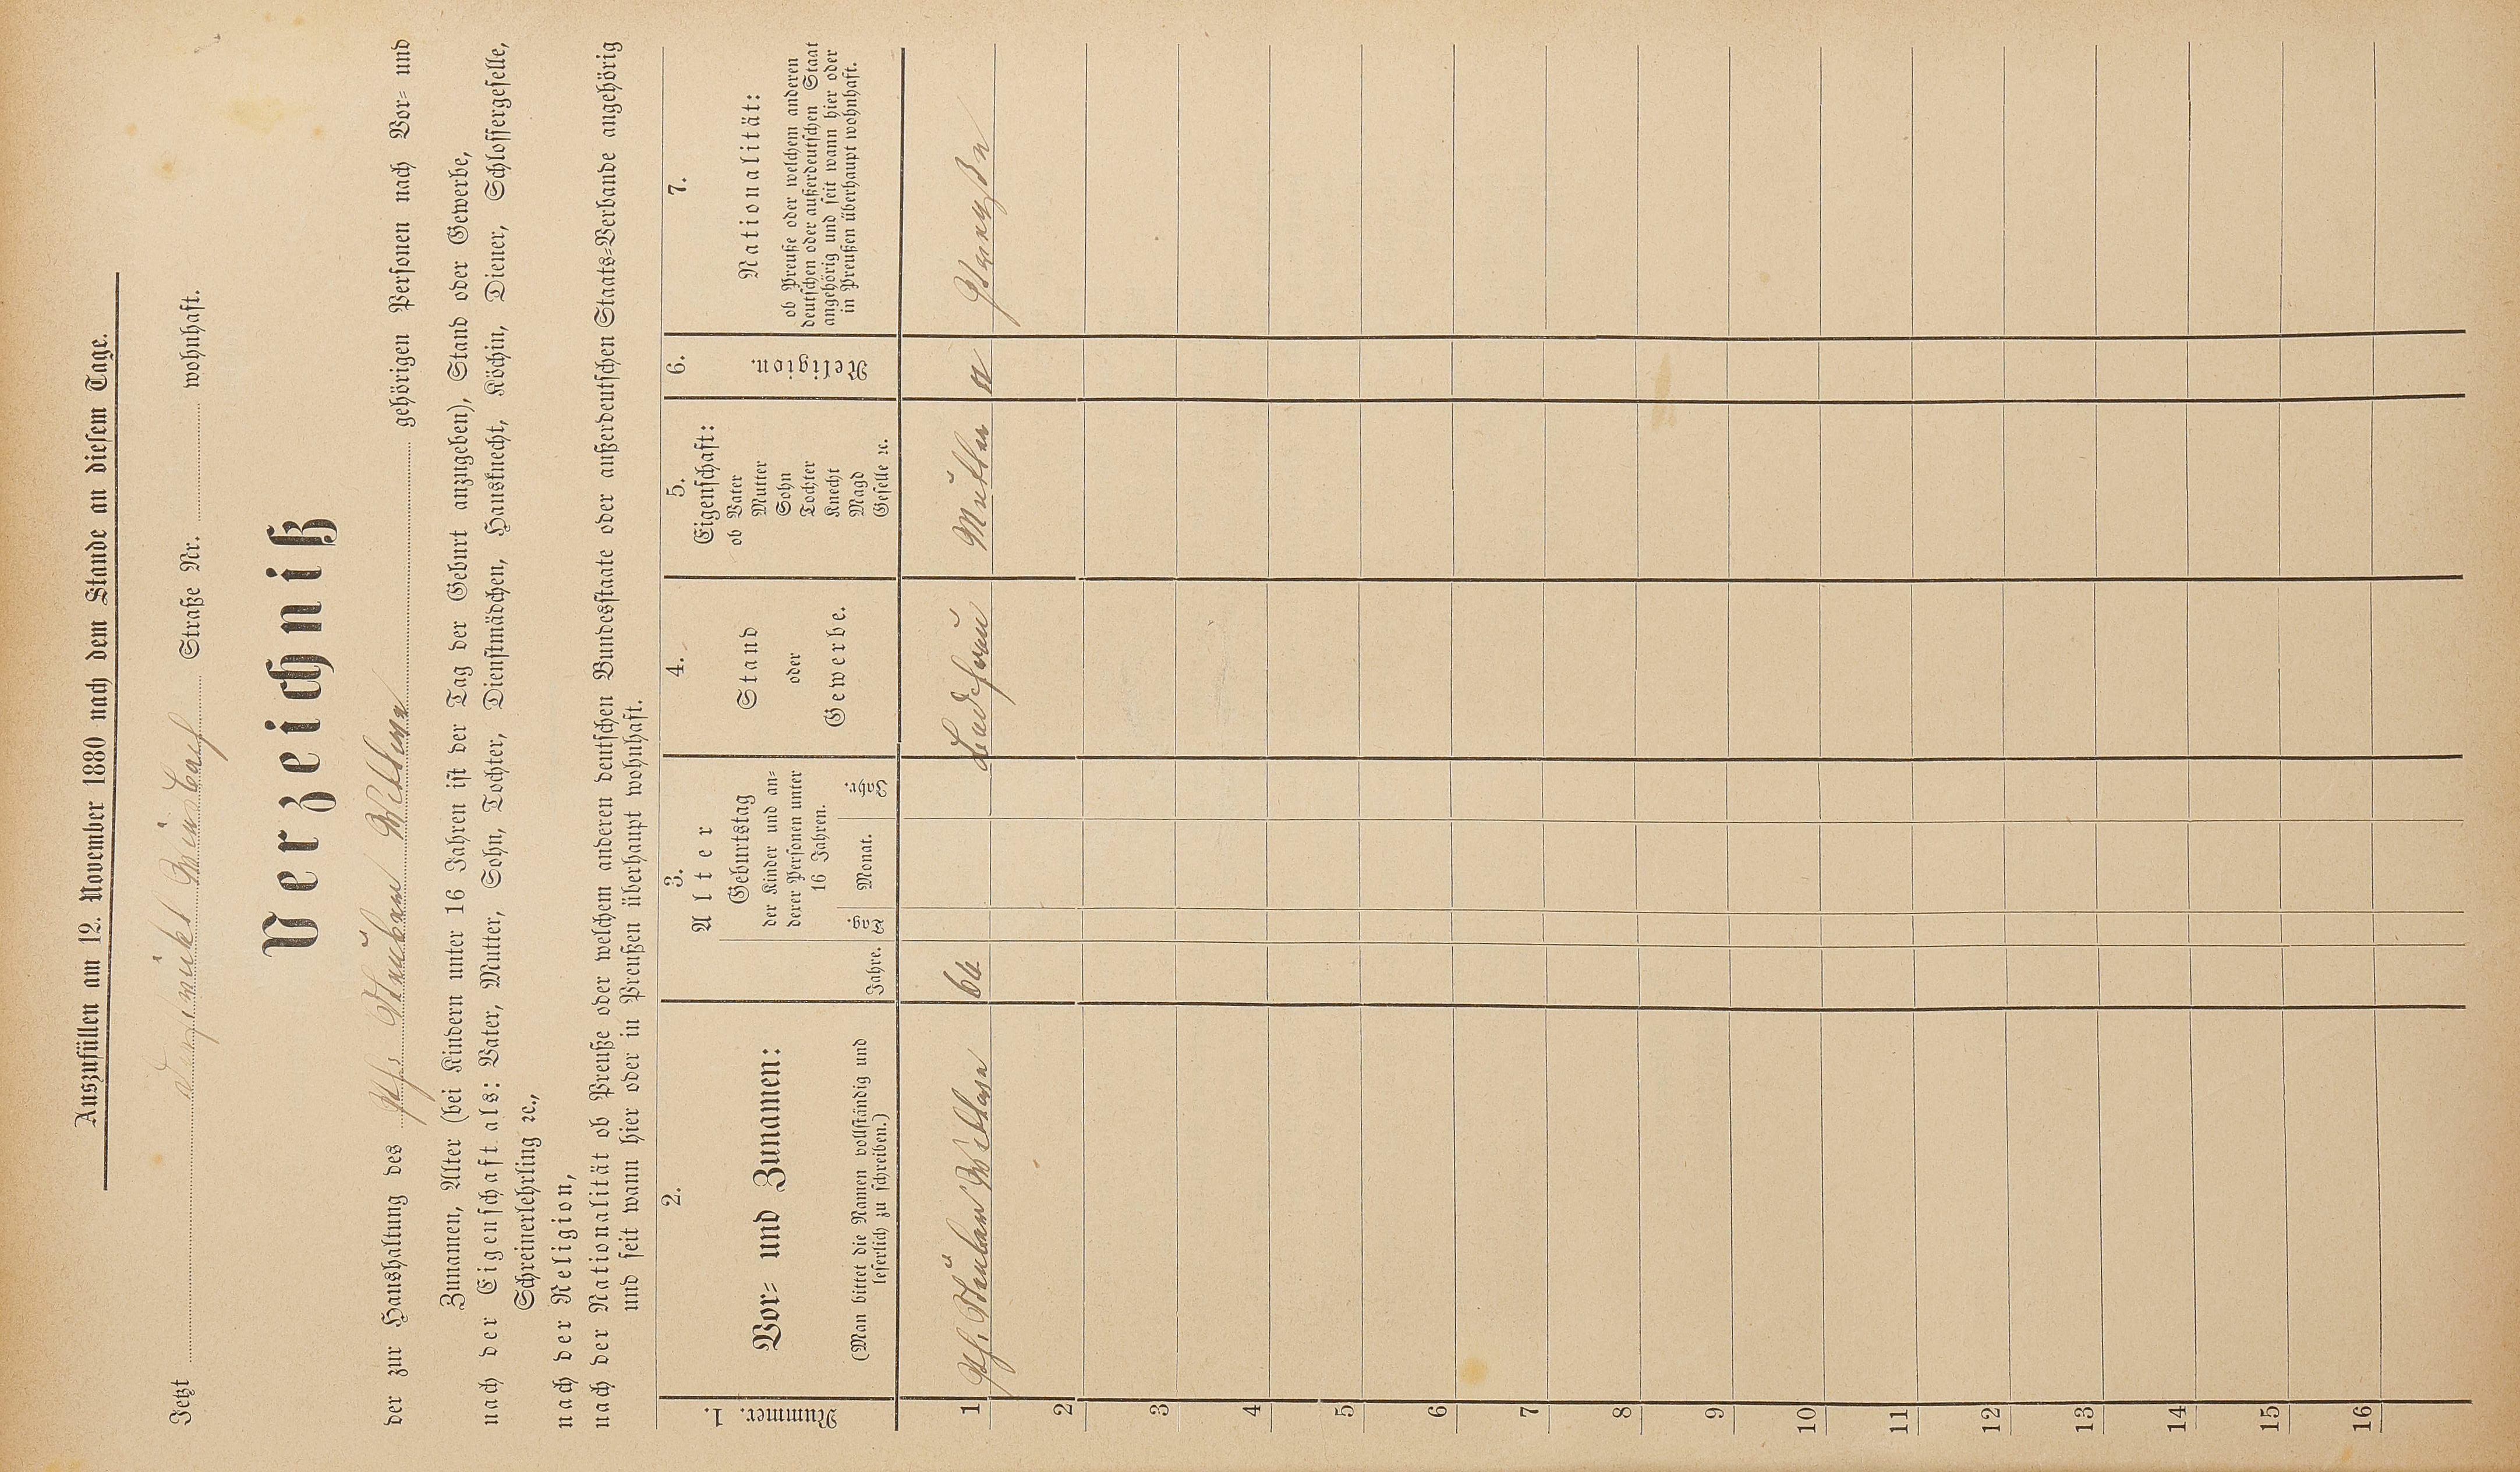 Auszufüllen am 12. November 1880 nach dem Stande an diesem Tage.
Jetzt Straße Nr. wohnhaft.
Verzeichniß
der zur Haushaltung des Wittwe gehörigen Personen nach Vor- und
Zunamen, Alter (bei Kindern unter 16 Jahren ist der Tag der Geburt anzugeben), Stand oder Gewerbe,
nach der Eigenschaft als: Vater, Mutter, Sohn, Tochter, Dienstmädchen, Hausknecht, Köchin, Diener, Schlossergeselle,
Schreinerlehrling ꝛc.,
nach der Religion,
nach der Nationalität ob Preuße oder welchem anderen deutschen Bundesstaate oder außerdeutschen Staats-Verbande angehörig
und seit wann hier oder in Preußen überhaupt wohnhaft.
1.
Nummer.
2.
Vor- und Zunamen:
(Man bittet die Namen vollständig und
leserlich zu schreiben.)
3.
Alter
Jahre.
Geburtstag
der Kinder und an-
derer Personen unter
16 Jahren.
Tag.
Monat.
Jahr.
4.
Stand
oder
Gewerbe.
5.
Eigenschaft:
ob Vater
Mutter
Sohn
Tochter
Knecht
Magd
Geselle ꝛc.
6.
Religion.
7.
Nationalität:
ob Preuße oder welchem anderen
deutschen oder außerdeutschen Staat
angehörig und seit wann hier oder
in Preußen überhaupt wohnhaft.
1 Wittwe 64 Mutter Preuße
2
3
4
5
6
7
8
9
10
11
12
13
14
15
16